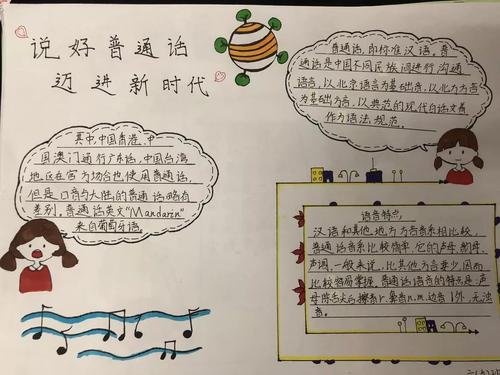 说好普通话
迈进新时代
普通话,即标准汉语,普
通话是中国不同民族间进行沟通
语言,以北京语言为基础音,以北方方言
为基础方言,以典范的现代白话文著
作为语法规范。
其中,中国香港、中
国澳门通行广东话,中国台湾
地区在官方场合也使用普通话,
但是口音与大陆的普通话略有
差别,普通话英文"Mandarin"
来自葡萄牙语。
语音特点
汉语和其他地方方言音系相比较,
普通话音系比较简单,它的声母、韵母
声调,一般来说,比其他方言要少,因而
比较容易掌握。普通话语音的特点是,声
母除舌尖后擦音r、鼻音n.m.边音l外,无浊
音。